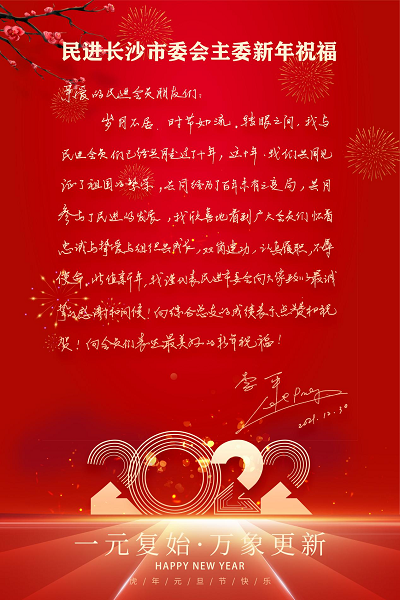 民进长沙市委会主委新年祝福
亲爱的民进会员朋友们：
岁月不居，时节如流。转眼之间，我与
民进会员们已经共同走过了十年，这十年，我们共同见
证了祖国的繁荣，共同经历了百年未有之变局，共同
参与了民进的发展，我欣喜地看到广大会员们怀着
忠诚与挚爱与组织共成长，双岗建功，认真履职，不辱
使命。此值新年，我谨代表民进市委会向大家致以最诚
挚的感谢和问候！向你们表达最美好的新年祝福！
李平
2021.12.30
2022
一元复始·万象更新
HAPPY NEW YEAR
虎年元旦节快乐